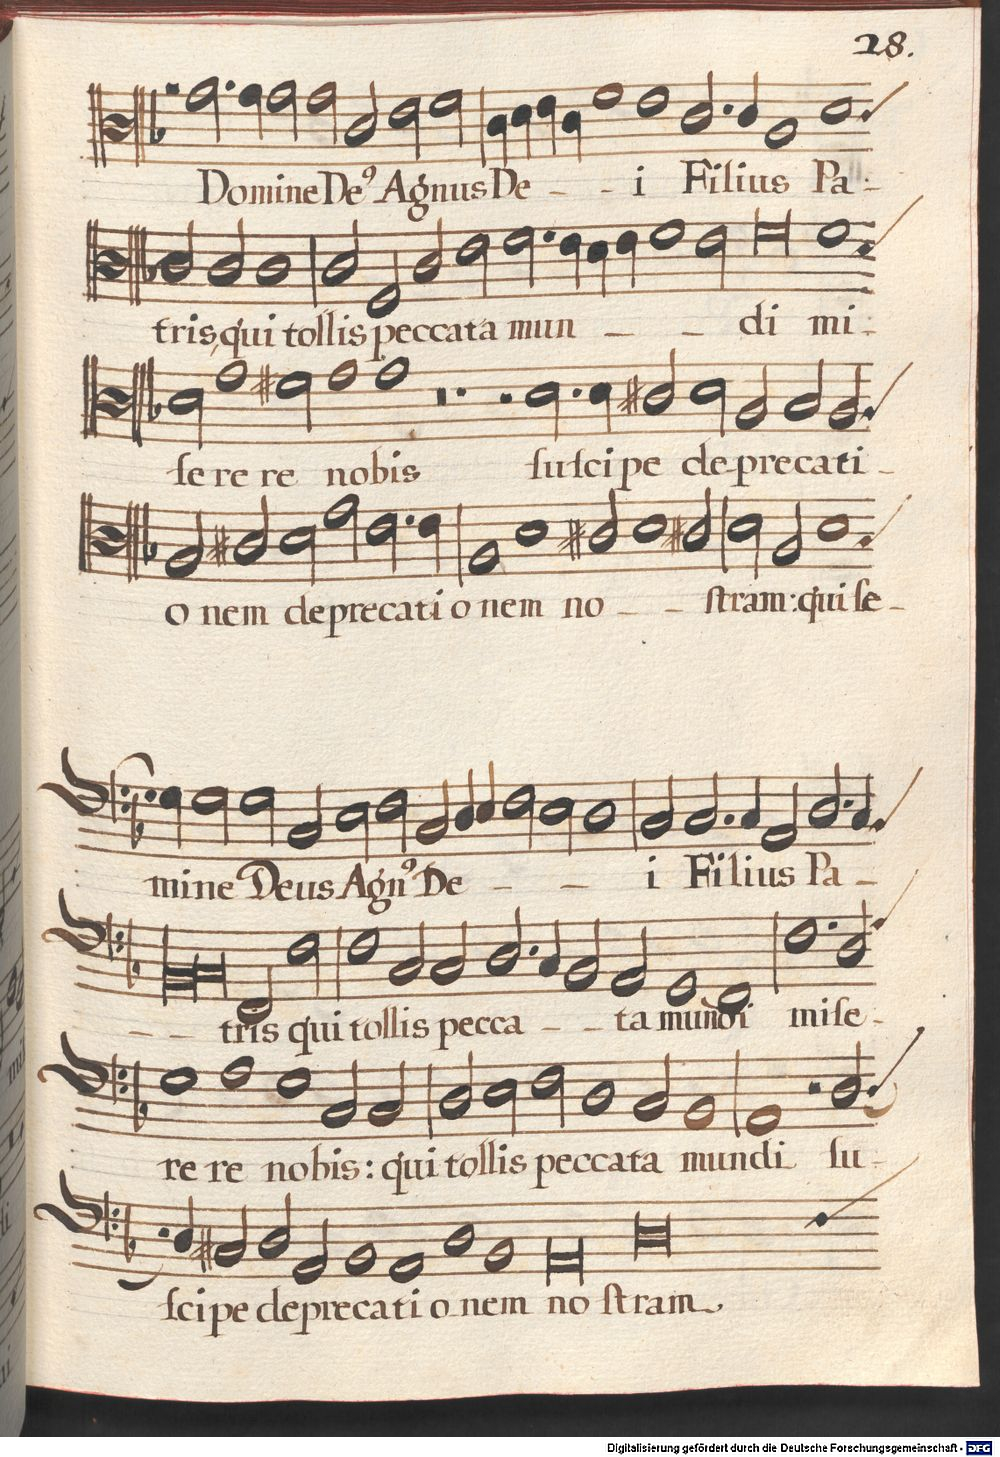 28.
Domine De⁹ Agnus De - - i Filius Pa-
tris, qui tollis peccata mun - - di mi-
serere re nobis suscipe deprecati-
onem deprecationem no - - stram: qui se-
mine Deus Agn⁹ De - - i Filius Pa-
- - tris qui tollis pecca - - ta mundi mise-
rere re nobis: qui tollis peccata mundi su-
scipe deprecationem nostram,
Digitalisierung gefördert durch die Deutsche Forschungsgemeinschaft - DFG